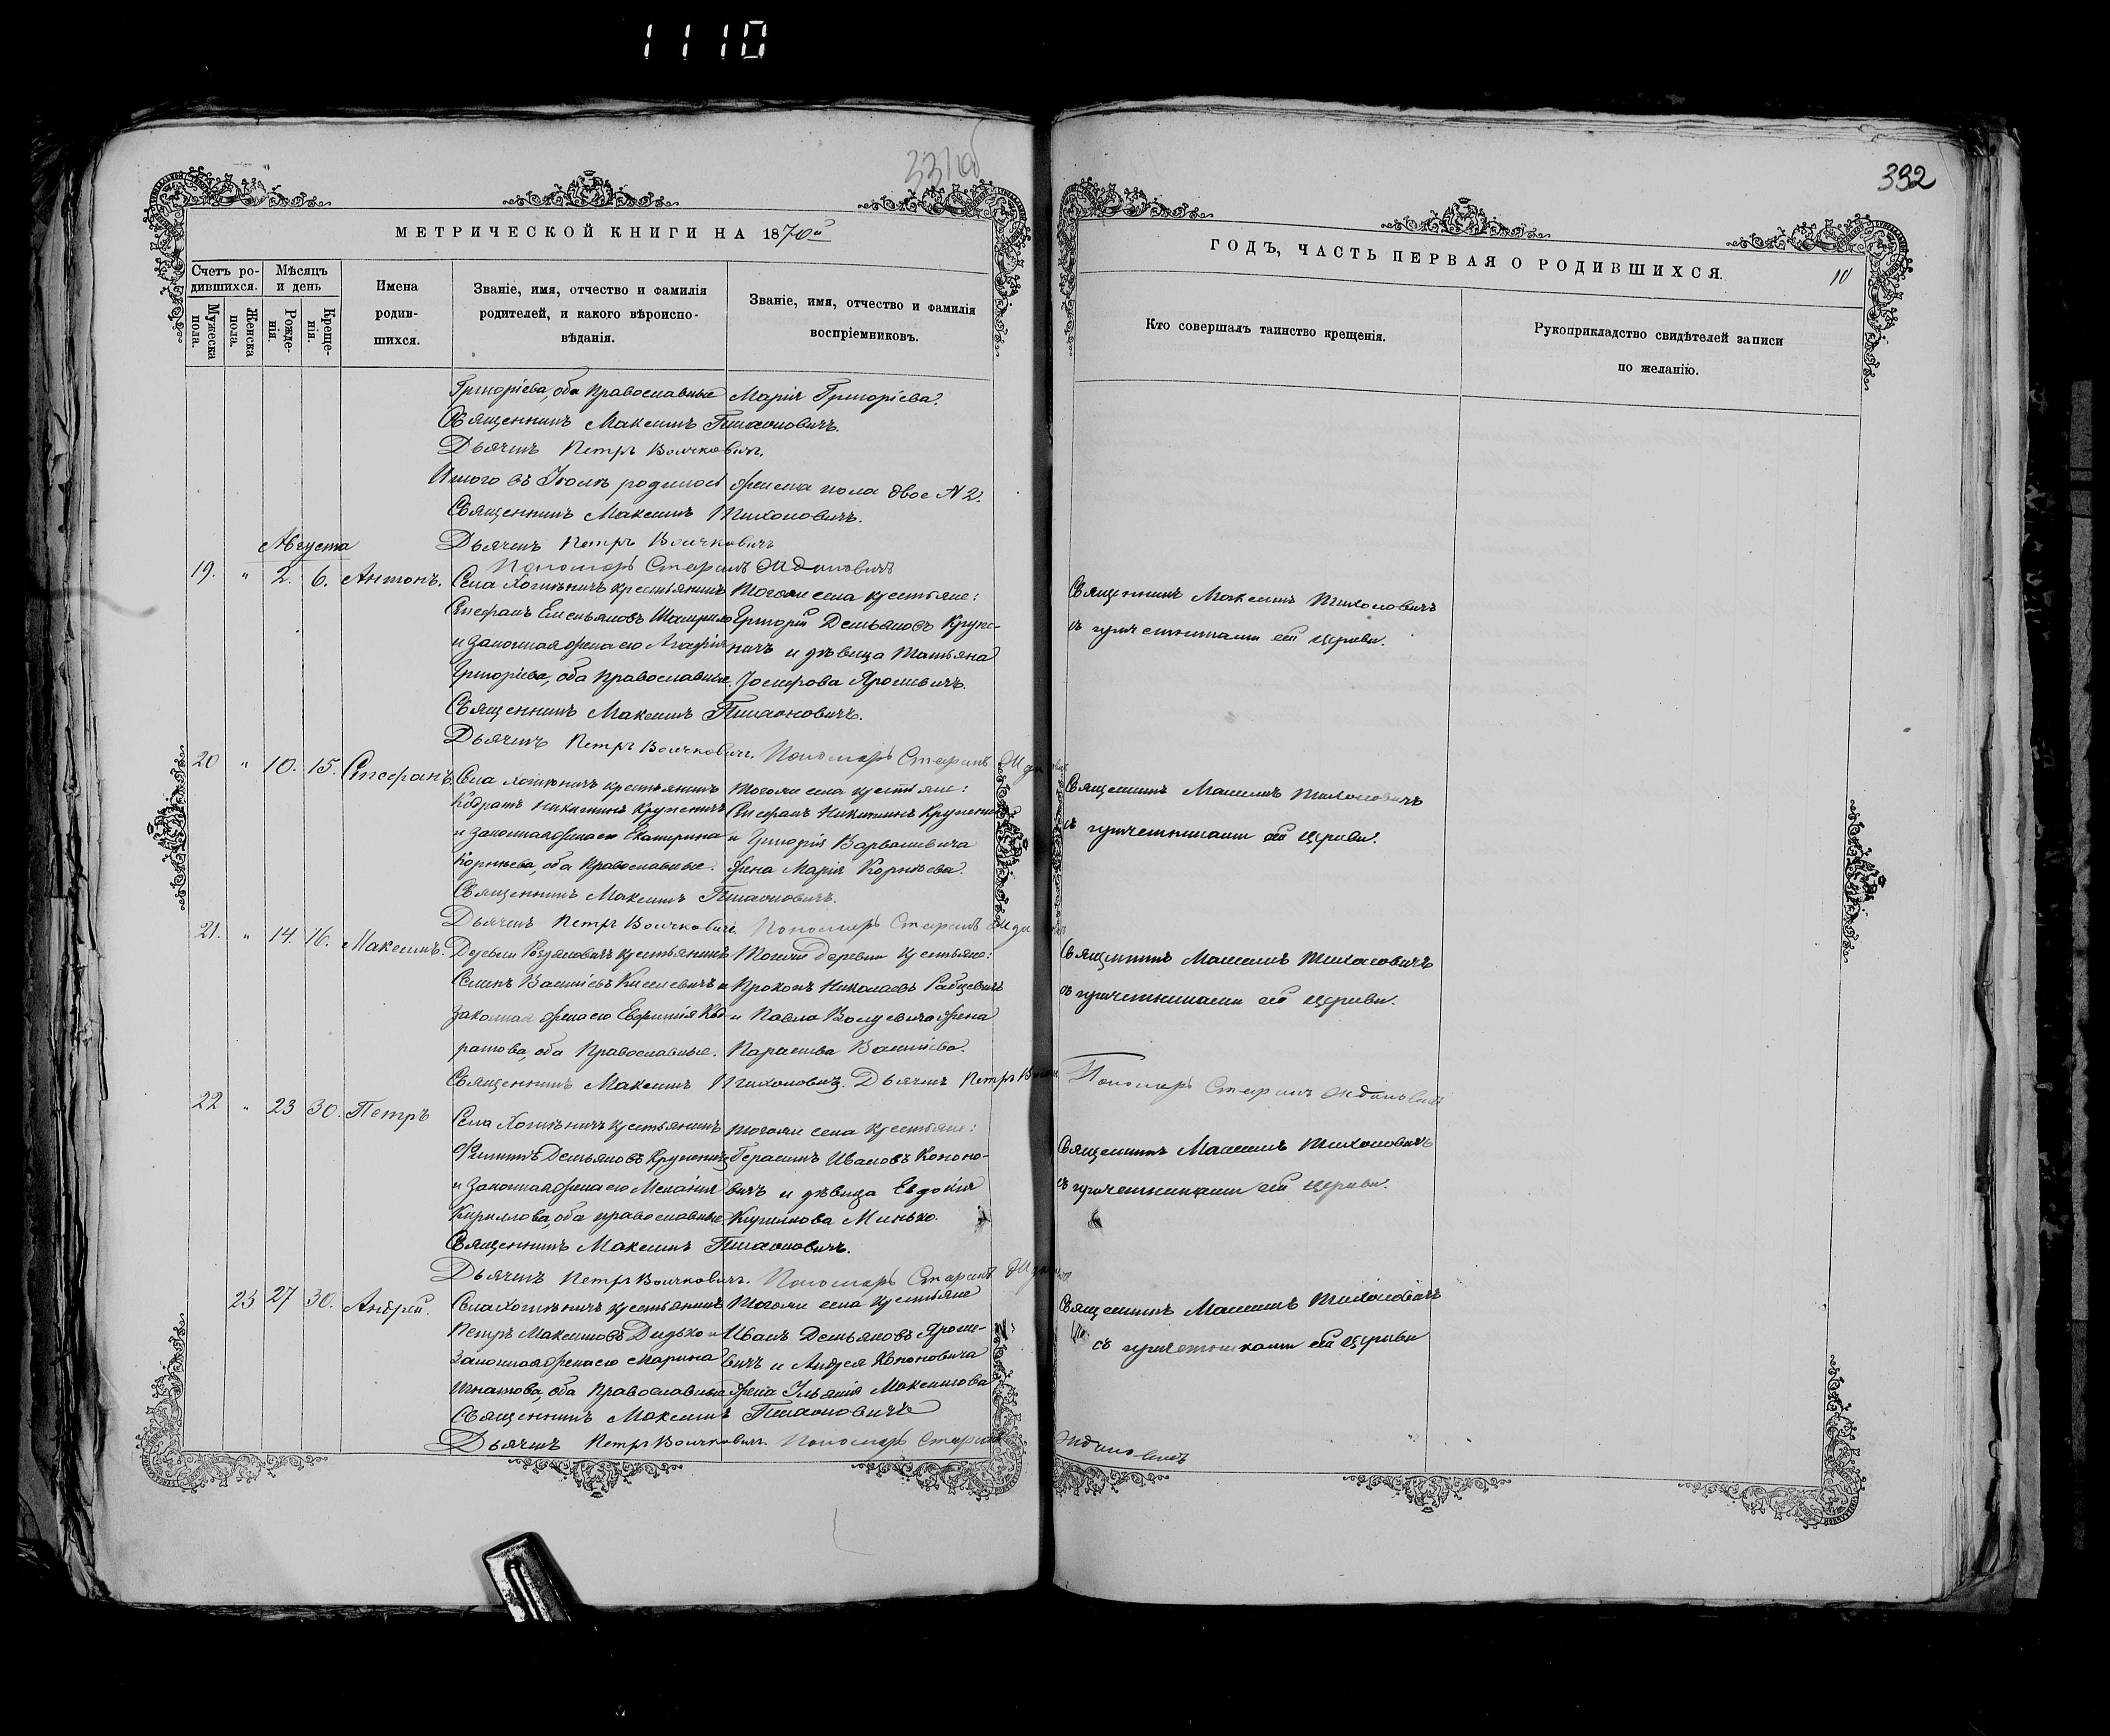 1110
331об
МЕТРИЧЕСКОЙ КНИГИ НА 1870й
Счетъ ро-
дившихся.
Мѣсяцъ
и день
Мужеска
пола.
Женска
пола.
Рожде-
нія.
Креще-
нія.
Имена
родив-
шихся.
Званіе, имя, отчество и фамилія
родителей, и какого вѣроиспо-
вѣданія.
Званіе, имя, отчество и фамилія
воспріемниковъ.
Григоріева, оба Православные Марія Григоріева.
Священникъ Максимъ Тихоновичъ.
Дьячекъ Петръ Волчковичъ.
Итого въ Іюлѣ родилось женска пола двое N 2.
Священникъ Максимъ Тихоновичъ.
Августа
Дьячекъ Петръ Волчковичъ
Пономарь Стефанъ Ждановичъ
19. " 2. 6. Антонъ.
Села Хотыничъ крестьянинъ
Стефанъ Емельяновъ
и законная жена его Агафія
Григоріева, оба Православные.
Тогоже села крестьяне:
Григорій Демьяновъ Крупе-
ничъ и дѣвица Татьяна
Іосифова Ярошевичъ.
Священникъ Максимъ Тихоновичъ.
Дьячекъ Петръ Волчковичъ. Пономарь Стефанъ Ждановичъ
20 " 10. 15. Стефанъ
Села Хотыничъ крестьянинъ
Кодратъ Никитинъ Крупеничъ
и законная жена его Екатерина
Корнѣева, оба Православные.
Тогоже села крестьяне:
Стефанъ Никитинъ Крупеничъ
и Григорія Варвашевича
жена Марія Корнѣева.
Священникъ Максимъ Тихоновичъ.
Дьячекъ Петръ Волчковичъ. Пономарь Стефанъ Ждановичъ
21. " 14. 16. Максимъ.
Деревни крестьянинъ
Семенъ Василіевъ Киселевичъ и
законная жена его Евфимія Код-
ратова, оба Православные.
Тойже деревни крестьяне:
Прокопъ Николаевъ Рабцевичъ
и Павла жена
Параскева Василіева.
Священникъ Максимъ Тихоновичъ. Дьячекъ Петръ
22 " 23 30. Петръ
Села Хотыничъ крестьянинъ
Филиппъ Демьяновъ Крупеничъ
и законная жена его Меланія
Кирилова, оба православные
Тогоже села крестьяне:
Герасимъ Ивановъ Кононо-
вичъ и дѣвица Евдокія
Кирилова Минько.
Священникъ Максимъ Тихоновичъ.
Дьячекъ Петръ Волчковичъ. Пономарь Стефанъ Ждановичъ
23 27 30. Андрей.
Села Хотыничъ крестьянинъ
Петръ Максимовъ Дидько и
законная жена его Марина
Игнатова, оба Православные
Тогоже села крестьяне
Иванъ Демьяновъ Яроше-
вичъ и Андрея Кононовича
жена Максимова
Священникъ Максимъ Тихоновичъ
Дьячекъ Петръ Волчковичъ. Пономарь Стефанъ
332
ГОДЪ, ЧАСТЬ ПЕРВАЯ О РОДИВШИХСЯ.
10
Кто совершалъ таинство крещенія.
Рукоприкладство свидѣтелей записи
по желанію.
Священникъ Максимъ Тихоновичъ
съ причетниками сей Церкви.
Священникъ Максимъ Тихоновичъ
съ причетниками сей Церкви.
Священникъ Максимъ Тихоновичъ
съ причетниками сей Церкви.
Пономарь Стефанъ Ждановичъ
Священникъ Максимъ Тихоновичъ
съ причетниками сей Церкви.
Священникъ Максимъ Тихоновичъ
съ причетниками сей Церкви
Ждановичъ